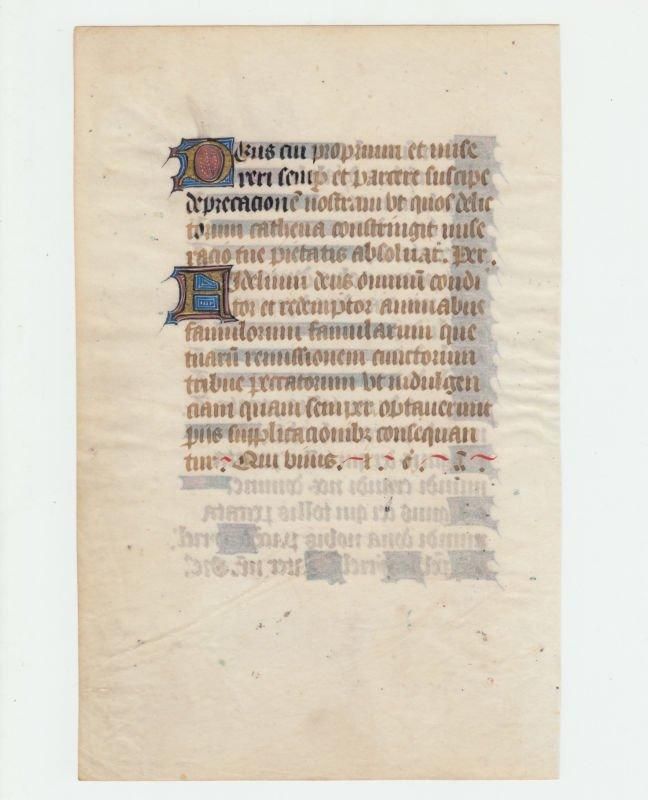 Deus cui proprium et mise
reri semp et parcere suscipe
deprecacionē nostram vt quos delic
torum cathena constringit mise
racio tue pietatis absoluat. Per.
Fidelium deus omniū condi
tor et redemptor animabus
famulorum famularum que
tuarū remissionem cunctorum
tribue peccatorum vt indulgen
ciam quam semper optauerunt
piis supplicacionibꝫ consequan
tur. Qui viuis.